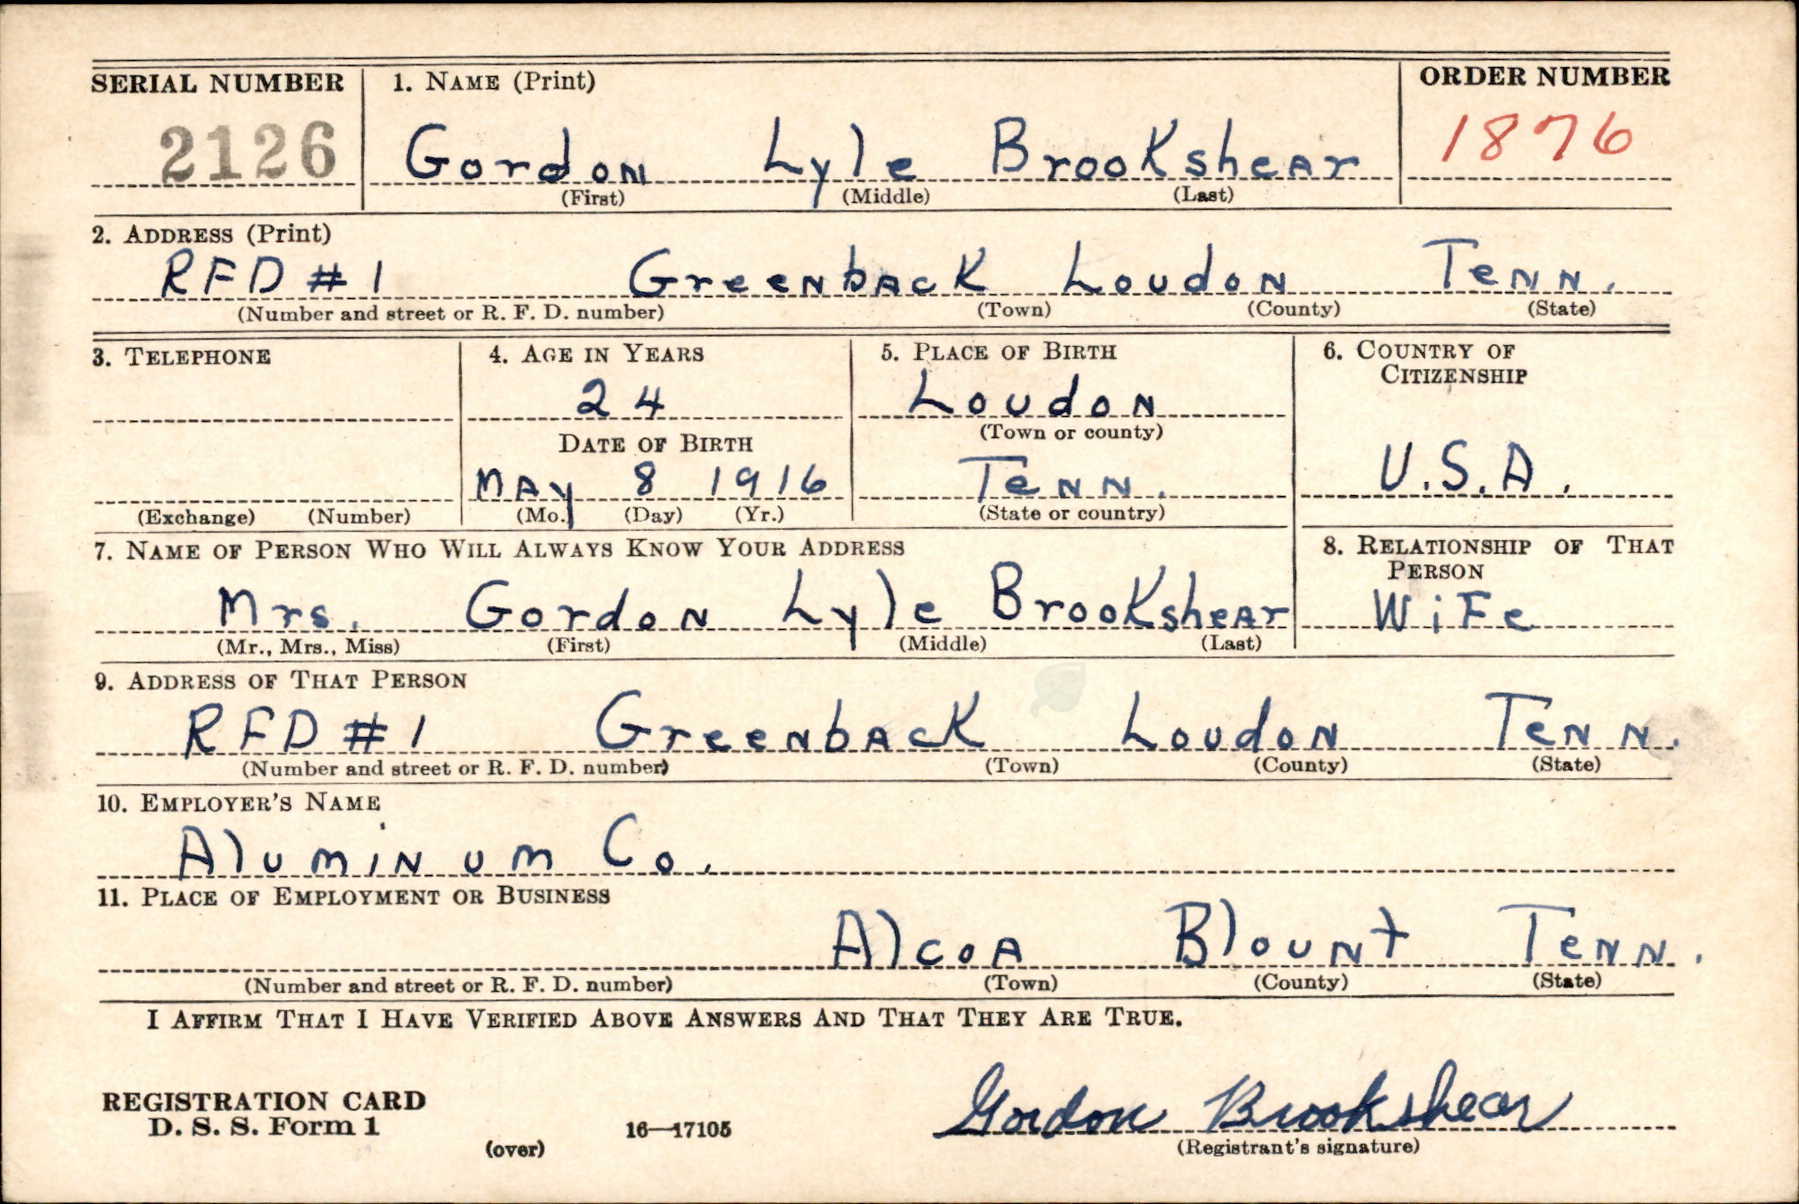 SERIAL NUMBER 1. NAME (Print) ORDER NUMBER
2126 Gordon Lyle Brookshear 1876
(First) (Middle) (Last)
2. ADDRESS (Print)
RFD #1 Greenback Loudon Tenn.
(Number and street or R. F. D. number) (Town) (County) (State)
3. TELEPHONE 4. AGE IN YEARS 5. PLACE OF BIRTH 6. COUNTRY OF
CITIZENSHIP
24 Loudon
(Town or county)
DATE OF BIRTH
May 8 1916 Tenn. U.S.A.
(Exchange) (Number) (Mo.) (Day) (Yr.) (State or country)
7. NAME OF PERSON WHO WILL ALWAYS KNOW YOUR ADDRESS 8. RELATIONSHIP OF THAT
PERSON
Mrs. Gordon Lyle Brookshear Wife
(Mr., Mrs., Miss) (First) (Middle) (Last)
9. ADDRESS OF THAT PERSON
RFD #1 Greenback Loudon Tenn.
(Number and street or R. F. D. number) (Town) (County) (State)
10. EMPLOYER'S NAME
Aluminum Co.
11. PLACE OF EMPLOYMENT OR BUSINESS
Alcoa Blount Tenn.
(Number and street or R. F. D. number) (Town) (County) (State)
I AFFIRM THAT I HAVE VERIFIED ABOVE ANSWERS AND THAT THEY ARE TRUE.
REGISTRATION CARD
D. S. S. Form 1
(over) 16—17105
Gordon Brookshear
(Registrant's signature)